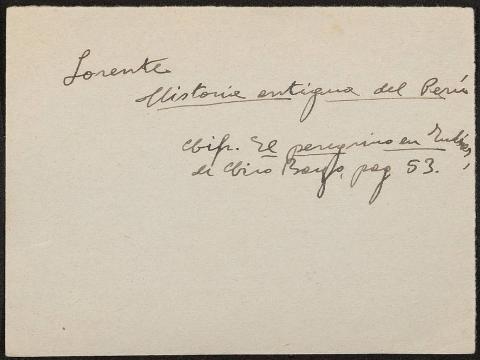 Lorente
Historia antigua del Perú
El peregrino en
de Ciro Bayo, pag 53.